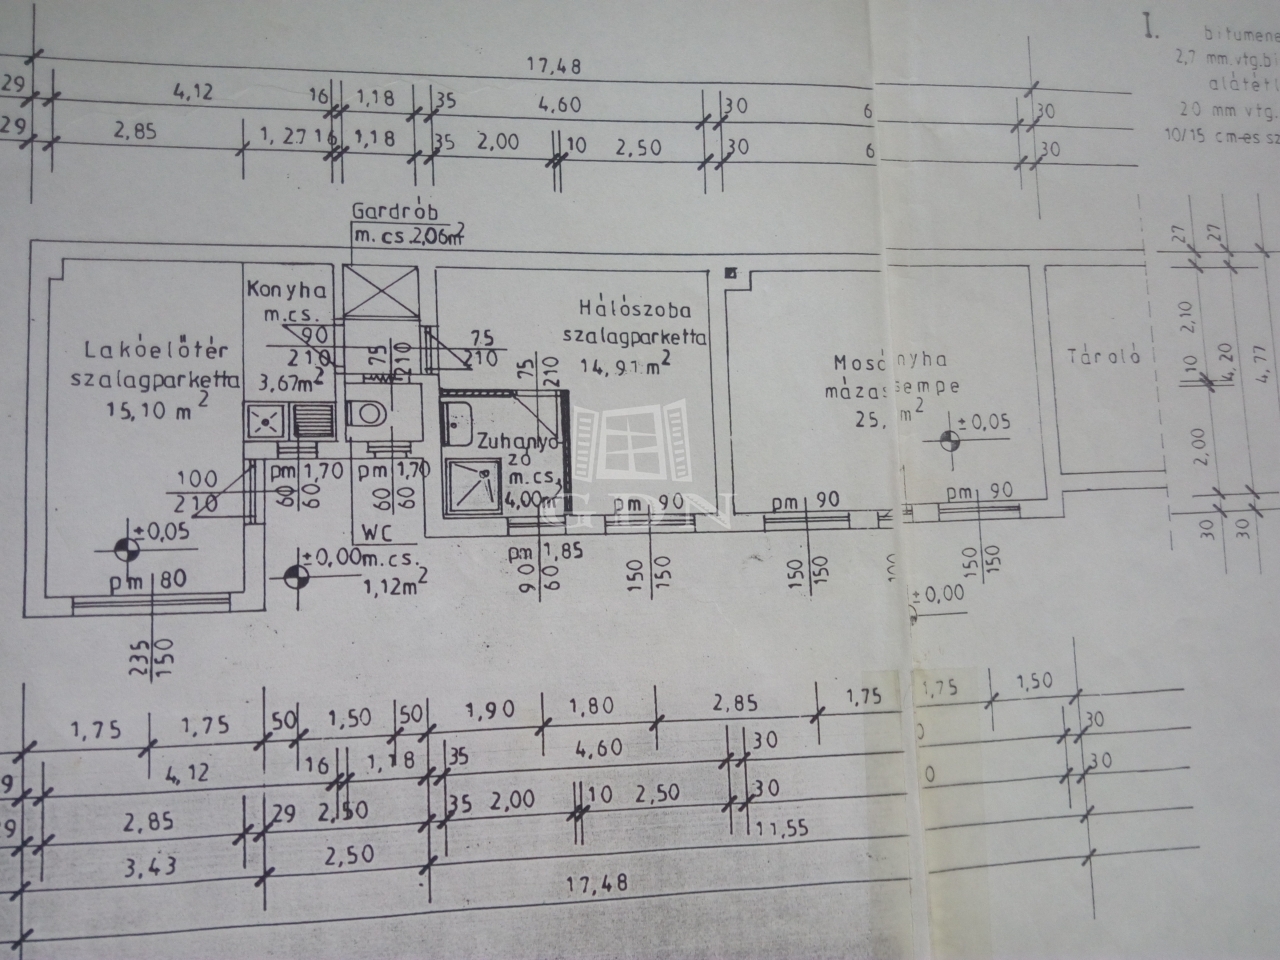 I.
bitumene
2,7 mm.vtg.bi
alátétl
20 mm vtg.
10/15 cm-es sz
17,48
29 4,12 16 1,18 35 4,60 30 6 30
29 2,85 1,27 16 1,18 35 2,00 10 2,50 30 6 30
Gardrób
m. cs. 2,06m²
Konyha
m.cs.
90
210
3,67m²
Lakóelőtér
szalagparketta
15,10 m²
100
210
±0,05
pm 80
235
150
75
210
75
210
75
210
Hálószoba
szalagparketta
14,91 m²
Zuhanyo
zó
m.cs.
4,00m²
pm 1,70
60
60
pm 1,70
60
60
WC
m.cs.
1,12m²
±0,00
pm 1,85
90
60
pm 90
150
150
pm 90
150
150
pm 90
150
150
Mosó nyha
mázas empe
25, m²
±0,05
±0,00
Tároló
27 27
2,10
10
4,20
4,77
2,00
30 30
GDN
1,75 1,75 50 1,50 50 1,90 1,80 2,85 1,75 1,75 1,50
9 4,12 16 1,18 35 4,60 30 0 30
29 2,85 29 2,50 35 2,00 10 2,50 30 0 30
3,43 2,50 11,55
17,48